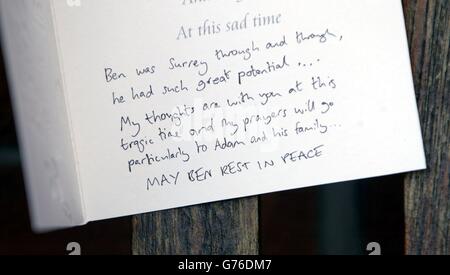 At this sad time
Ben was Surrey through and through,
he had such great potential ....
My thoughts are with you at this
tragic time and my prayers will go
particularly to Adam and his family...
MAY BEN REST IN PEACE
alamy
Image ID: G76DM7
www.alamy.com